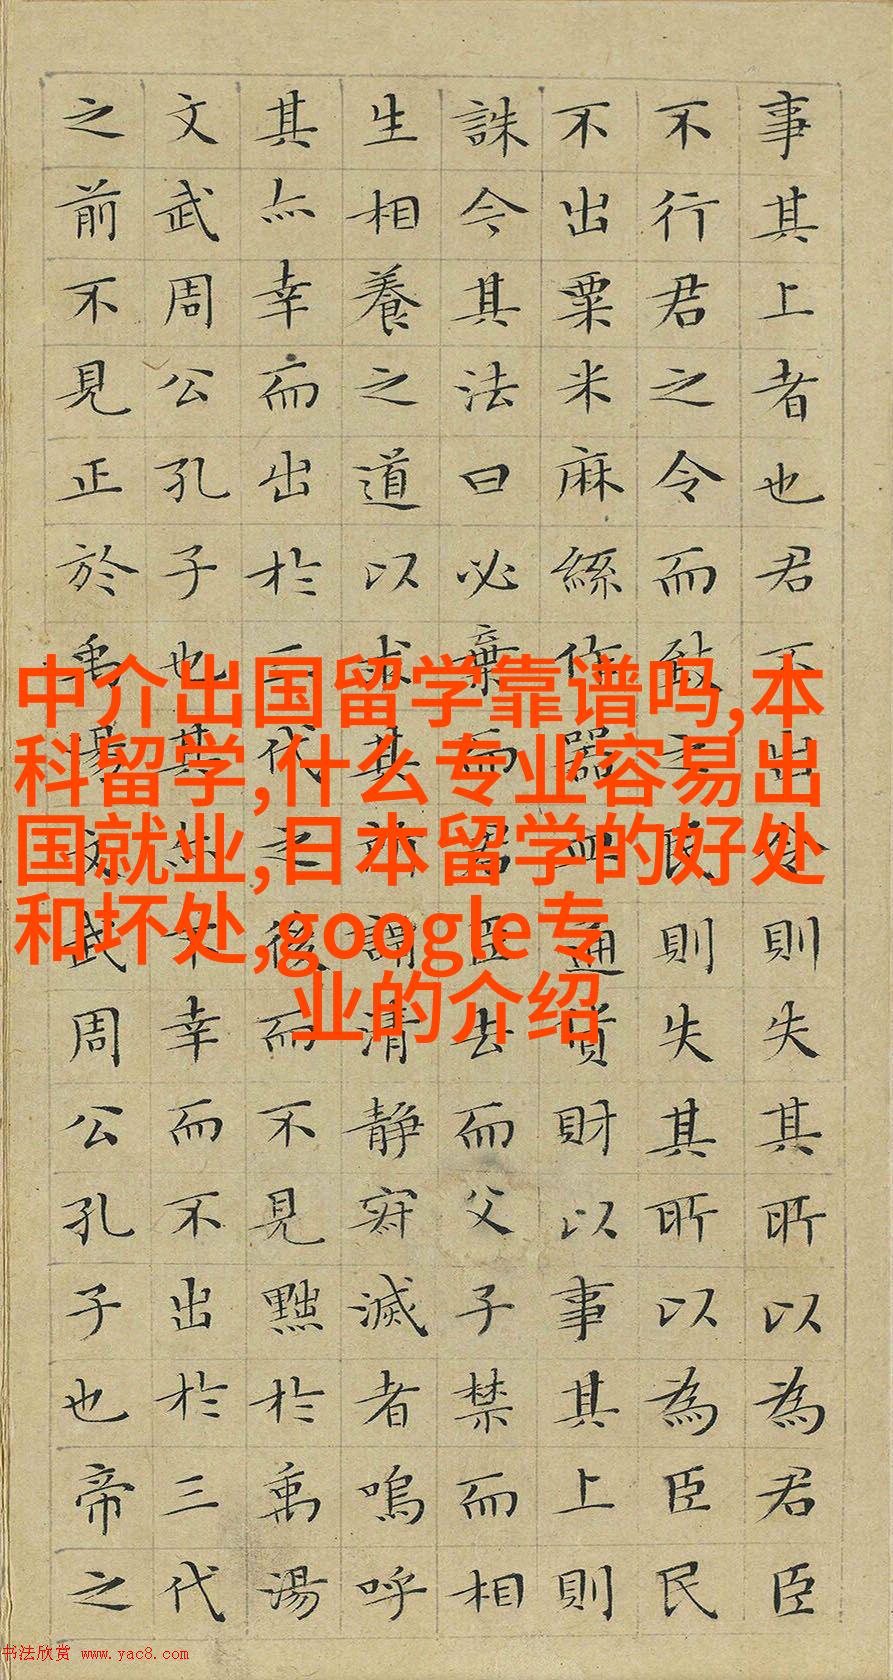 事其上者也君不出令則失其所以為君臣
不行君之令而致之民則失其所以為臣民
不出粟米麻絲作器皿通貨財以事其上則
誅今其法曰必棄而君臣去而父子禁而相
生相養之道以求其所謂清静寂滅者嗚呼
其亦幸而出於三代之後而不見黜於禹湯
文武周公孔子也其亦不幸而不出於三代
之前不見正於禹湯文武周公孔子也帝之
中介出国留学靠谱吗,本
科留学,什么专业容易出
国就业,日本留学的好处
和坏处,google专
业的介绍
书法欣赏 www.yac8.com